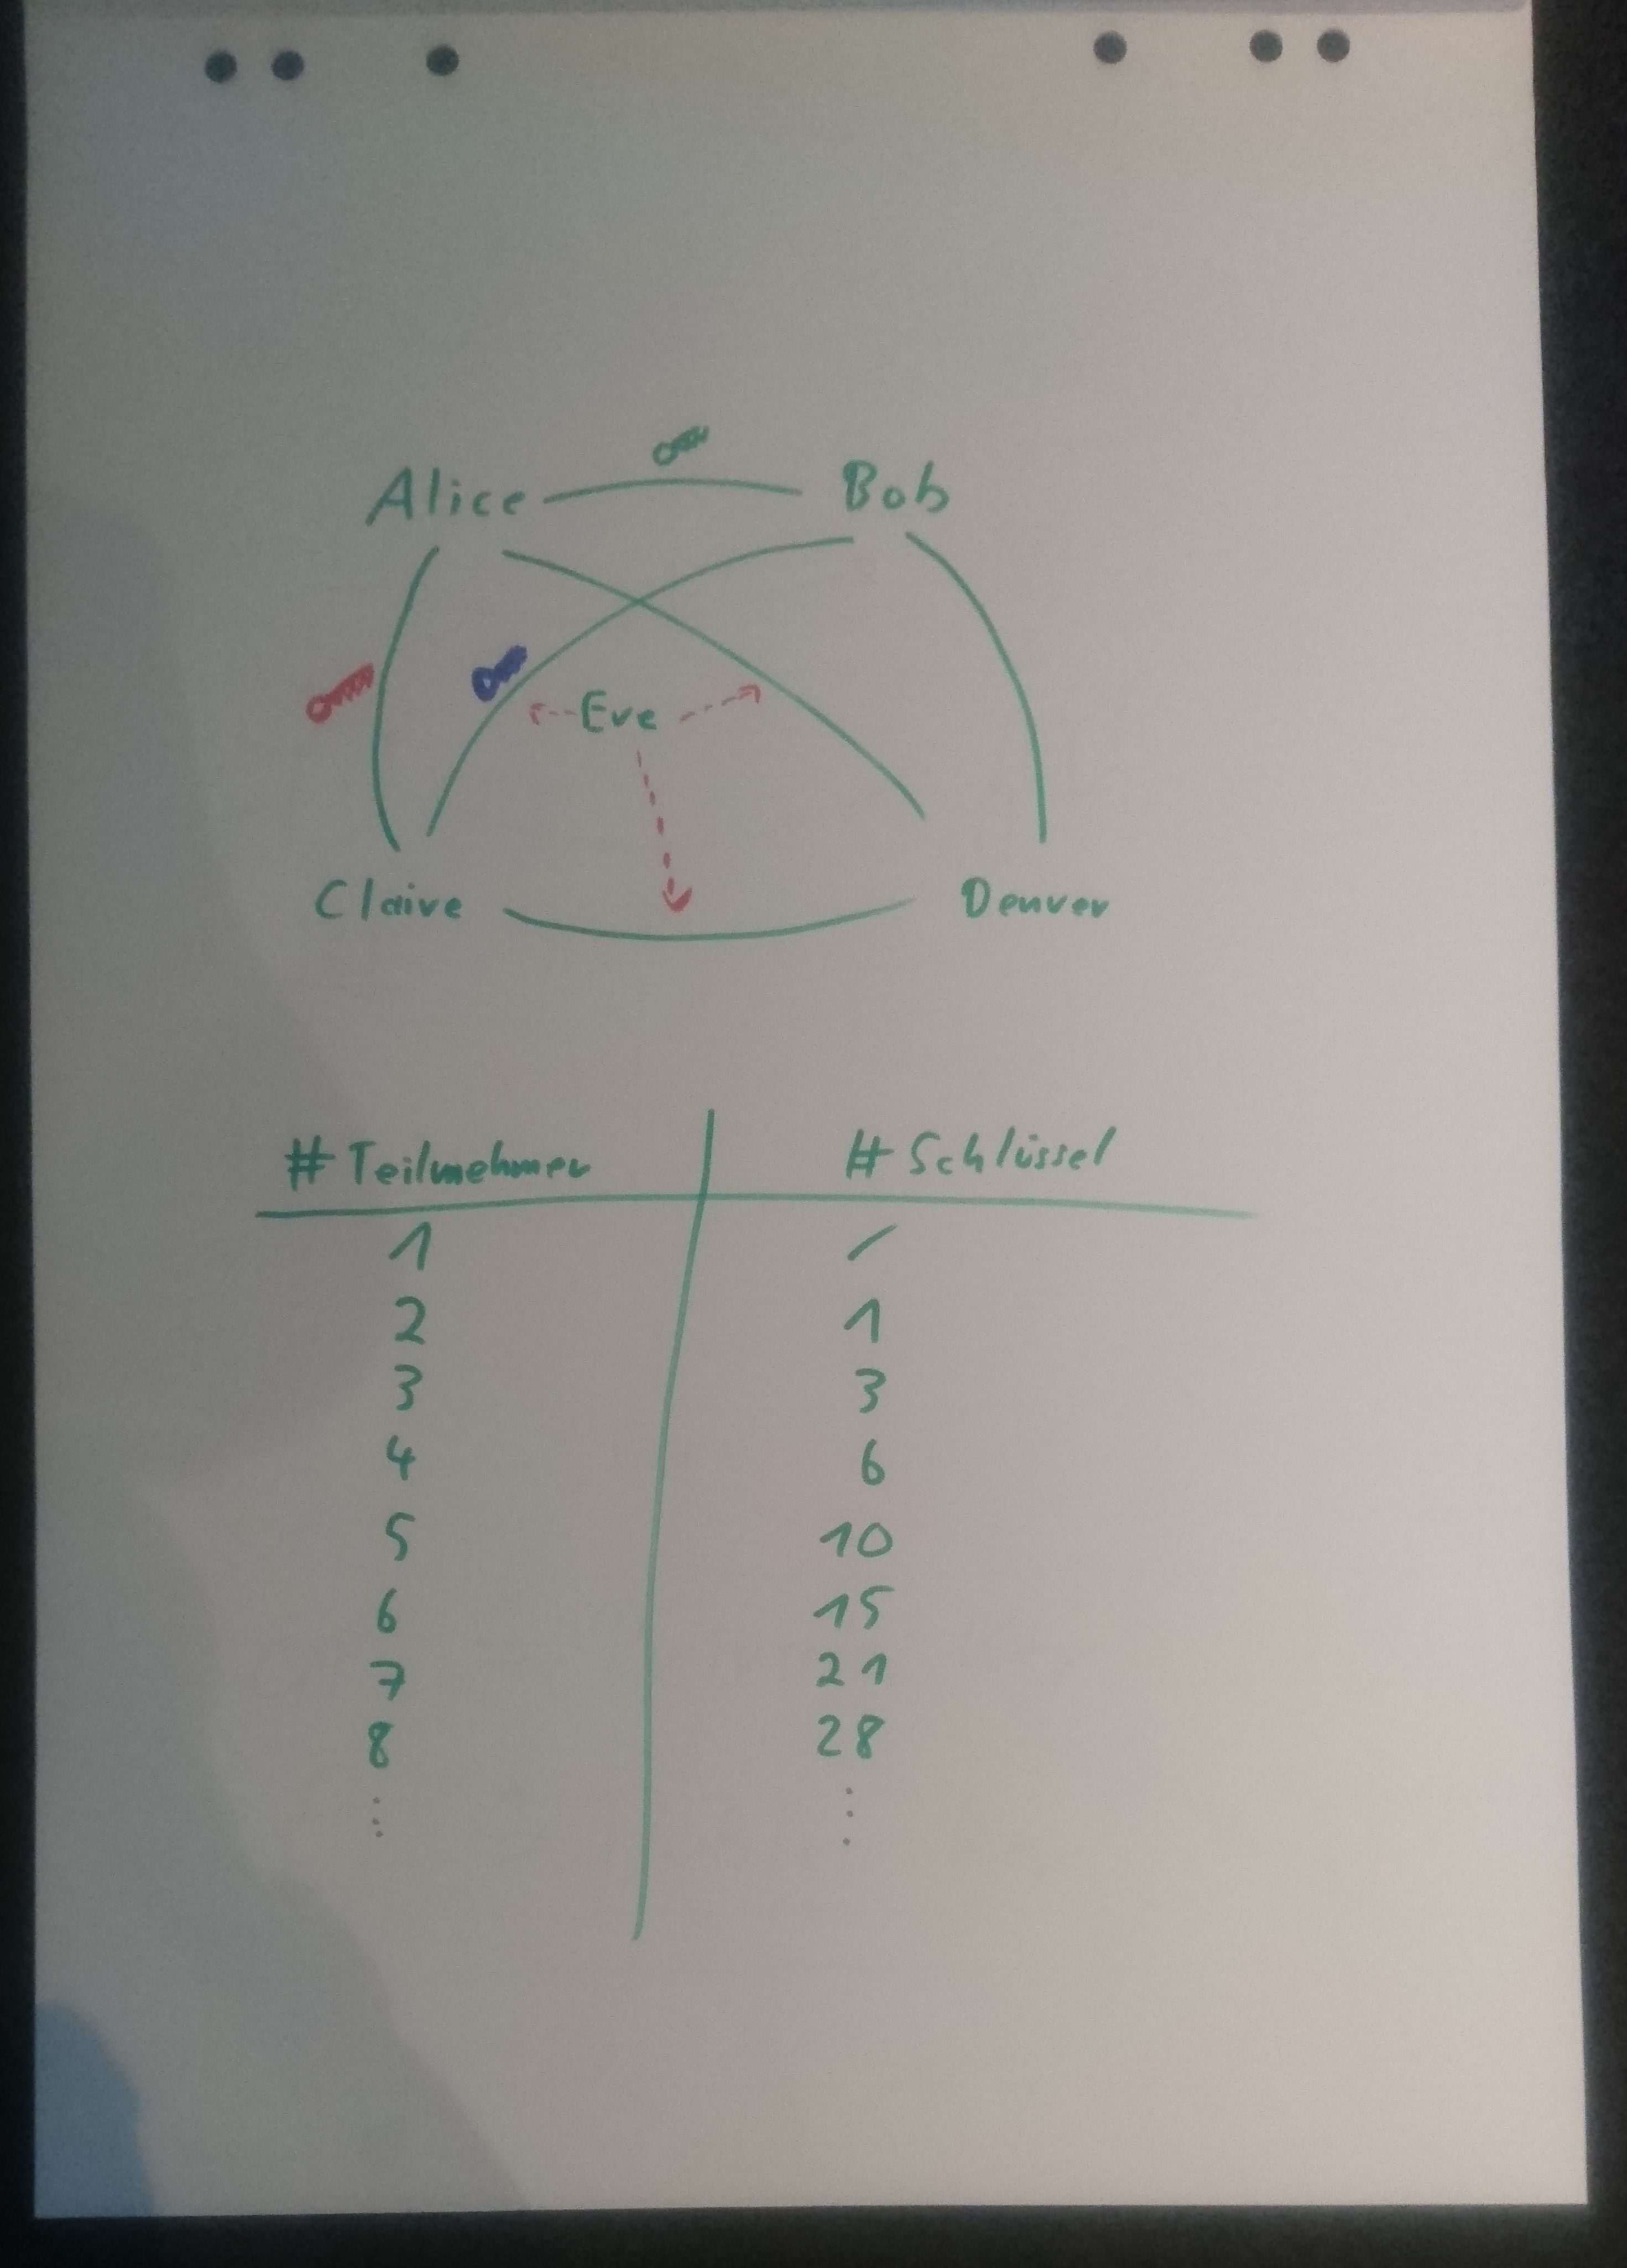 Alice Bob
Eve
Claire Denver
# Teilnehmer # Schlüssel
1 /
2 1
3 3
4 6
5 10
6 15
7 21
8 28
⋮ ⋮